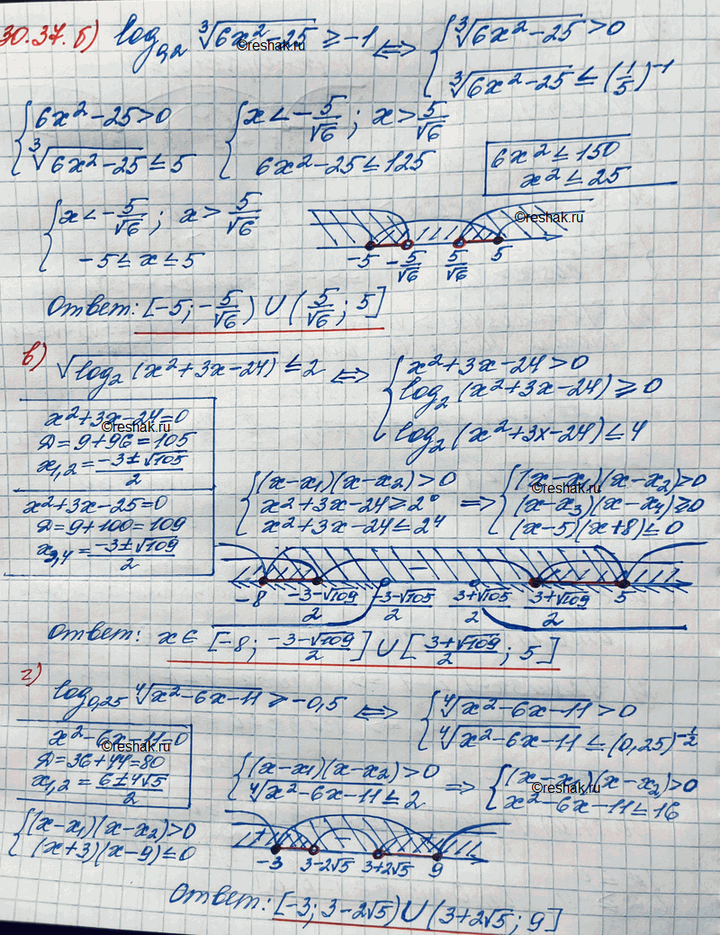 30.37. б) log₀,₂ ∛(6x²-25) ≥ -1 ⇔ { ∛(6x²-25) > 0
∛(6x²-25) ≤ (1/5)⁻¹
reshak.ru
{ 6x²-25>0 { x<-5/√6 ; x>5/√6
∛(6x²-25) ≤ 5 6x²-25≤125
6x² ≤ 150
x² ≤ 25
{ x<-5/√6 ; x>5/√6
-5≤x≤5
reshak.ru
-5 -5/√6 5/√6 5
Ответ: [-5; -5/√6) ∪ (5/√6; 5]
в) √(log₂(x²+3x-24)) ≤ 2 ⇔ { x²+3x-24>0
log₂(x²+3x-24) ≥ 0
log₂(x²+3x-24) ≤ 4
x²+3x-24=0
reshak.ru
Д=9+96=105
x₁,₂ = (-3±√105)/2
x²+3x-25=0
Д=9+100=109
x₃,₄ = (-3±√109)/2
{ (x-x₁)(x-x₂)>0 ⇒ { (x-x₁)(x-x₂)>0
x²+3x-24≥2⁰ (x-x₃)(x-x₄)≥0
x²+3x-24≤2⁴ (x-5)(x+8)≤0
reshak.ru
-8 (-3-√109)/2 (-3-√105)/2 (3+√105)/2 (3+√109)/2 5
Ответ: x∈ [-8; (-3-√109)/2] ∪ [(3+√109)/2; 5]
г) log₀,₂₅ ∜(x²-6x-11) ≥ -0,5 ⇔ { ∜(x²-6x-11) > 0
∜(x²-6x-11) ≤ (0,25)^(-1/2)
x²-6x-11=0
reshak.ru
Д=36+44=80
x₁,₂ = (6±4√5)/2
{ (x-x₁)(x-x₂)>0 ⇒ { (x-x₁)(x-x₂)>0
∜(x²-6x-11) ≤ 2 x²-6x-11≤16
reshak.ru
{ (x-x₁)(x-x₂)>0
(x+3)(x-9)≤0
+ -
-3 3-2√5 3+2√5 9
Ответ: [-3; 3-2√5) ∪ (3+2√5; 9]